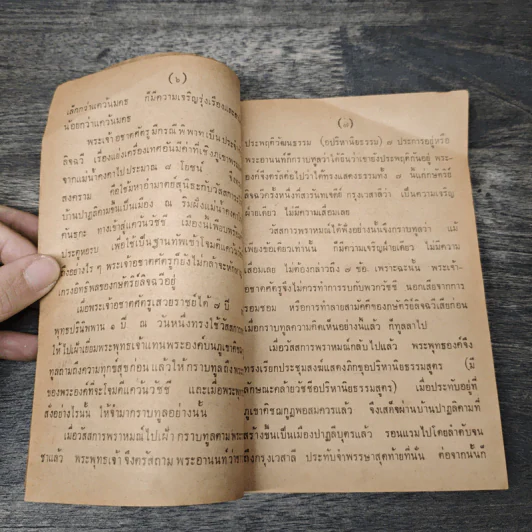 (๖)
เล็กกว่าแคว้นมคธ ก็มีความเจริญรุ่งเรืองและ
น้อยกว่าแคว้นมคธ
พระเจ้าอชาตศัตรูมีกรณีพิพาทเป็นประจำ
ลิจฉวี เรื่องแย่งเครื่องเทศอันมีค่าที่เชิงภูเขา
จากแม่น้ำคงคาไปประมาณ ๘ โยชน์
สงคราม คือใช้มหาอำมาตย์สุนีธะกับวัสสการ
บ้านปาฏลิคามขึ้นเป็นเมือง ณ ริมฝั่งแม่น้ำคงคา
คันธกะ ทางเข้าสู่แคว้นวัชชี เมืองนี้เพิ่งประ
ประตูหอรบ เพื่อใช้เป็นฐานทัพเข้าโจมตีแคว้น
ถึงอย่างไร ๆ พระเจ้าอชาตศัตรูก็ยังไม่กล้าจะหัก
เกรงอิทธิพลของกษัตริย์ลิจฉวีอยู่
เมื่อพระเจ้าอชาตศัตรูเสวยราชย์ได้ ๗ ปี
พุทธปรินิพพาน ๑ ปี ณ วันหนึ่งทรงใช้วัสสการ
ให้ไปเฝ้าเยี่ยมพระพุทธเจ้าแทนพระองค์บนภูเขาคิชฌ
ทูลถามถึงความทุกข์สุขก่อน แล้วให้กราบทูลถึง
ของพระองค์ที่จะโจมตีแคว้นวัชชี และเมื่อพระพุทธ
สั่งอย่างไรนั้น ให้จำมากราบทูลอย่างนั้น
เมื่อวัสสการพราหมณ์ไปเฝ้า กราบทูลตามพระ
ชาแล้ว พระพุทธเจ้าจึงตรัสถามพระอานนท์ว่า
(๗)
ประพฤติวัฒนธรรม (อปริหานิยธรรม) ๗ ประการอยู่หรือ
พระอานนท์ก็กราบทูลว่าได้ยินว่าเขายังประพฤติกันอยู่ พระ-
องค์จึงตรัสต่อไปว่าใครทรงแสดงธรรมทั้ง ๗ นั้นแก่กษัตริย์
ลิจฉวีครั้งหนึ่งที่สารันทเจดีย์ กรุงเวสาลีว่า เป็นความเจริญ
ฝ่ายเดียว ไม่มีความเสื่อมเลย
วัสสการพราหมณ์ได้ฟังอย่างนั้นจึงกราบทูลว่า แม้
เพียงข้อเดียวเท่านั้น ก็มีความเจริญฝ่ายเดียว ไม่มีความ
เสื่อมเลย ไม่ต้องกล่าวถึง ๗ ข้อ เพราะฉะนั้น พระเจ้า-
อชาตศัตรูจึงไม่ควรทำการรบกับพวกวัชชี นอกเสียจากการ
รอมชอม หรือการทำลายสามัคคีของกษัตริย์ลิจฉวีเสียก่อน
เมื่อกราบทูลความคิดเห็นอย่างนี้แล้ว ก็ทูลลาไป
เมื่อวัสสการพราหมณ์กลับไปแล้ว พระพุทธองค์จึง
ทรงเรียกประชุมสงฆ์แสดงภิกขุอปริหานิยธรรมสูตร (มี
ลักษณะคล้ายวัชชีอปริหานิยธรรมสูตร) เมื่อประทับอยู่ที่
ภูเขาคิชฌกูฏพอสมควรแล้ว จึงเสด็จผ่านบ้านปาฏลิคามที่
สร้างขึ้นเป็นเมืองปาฏลีบุตรแล้ว รอนแรมไปโดยลำดับจน
ถึงกรุงเวสาลี ประทับจำพรรษาสุดท้ายที่นั้น ต่อจากนั้นก็